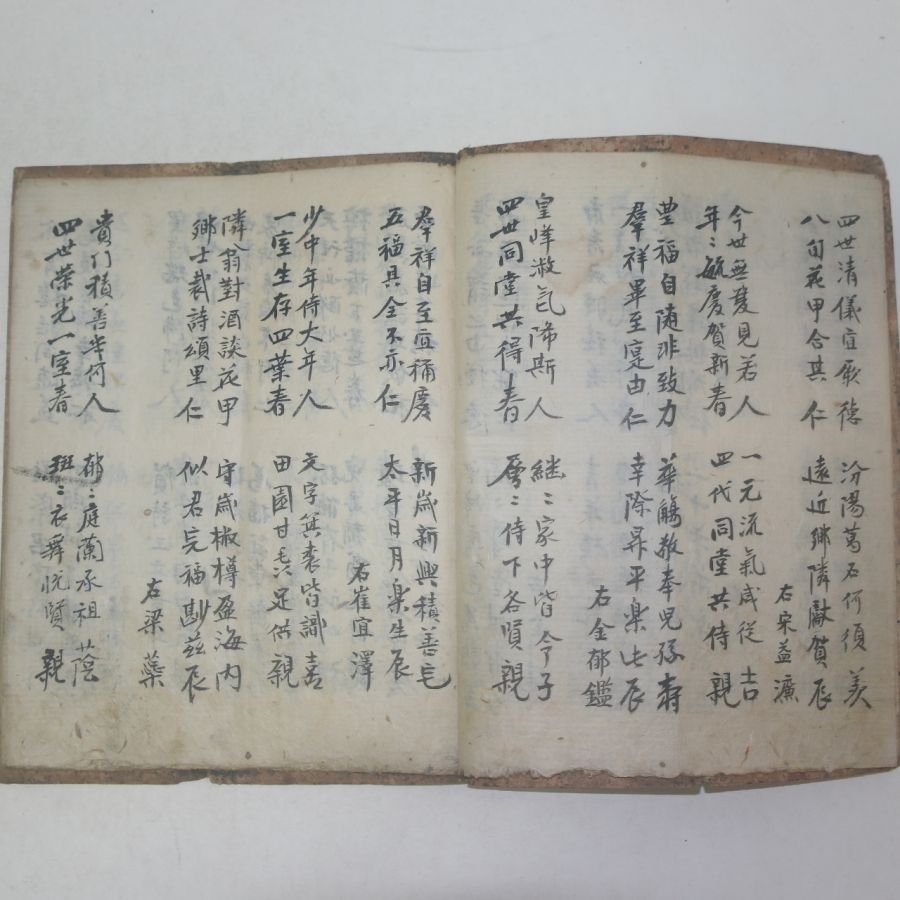 四世清儀宜厥德 汾陽葛石何須羨
八旬花甲合其仁 遠近鄉隣獻賀辰
右宋益濂
今世無雙見若人 一元流氣咸從吉
年〻毓慶賀新春 四代同堂共侍親
豊福自随非致力 華觴敎奉児孫壽
羣祥畢至寔由仁 幸際昇平楽此辰
右金郁鑑
皇 淑氣降斯人 継〻家中皆令子
四世同堂共得春 層〻侍下各賢親
羣祥自至宜稱慶 新歳新興積善宅
五福具全不亦仁 太平日月楽生辰
右崔宜澤
少中年侍大年人 文字箕裘皆識喜
一室生存四葉春 田園甘毳足供親
隣翁對酒談花甲 守歳椒樽盈海内
鄉士裁詩頌里仁 似君完福尠茲辰
右梁藥
貴门積善半何人 郁〻庭蘭承祖蔭
四世榮光一室春 班〻衣舞悅賢親